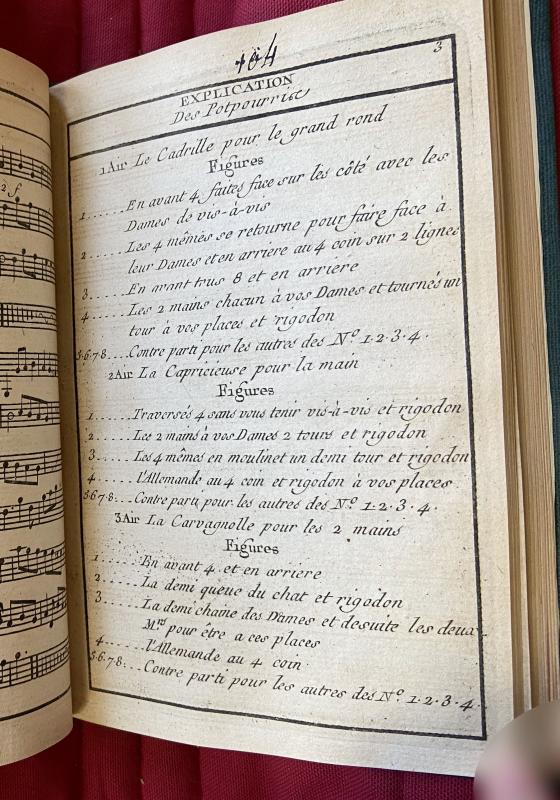 184
3
EXPLICATION
Des Potpourris
1 Air Le Cadrille pour le grand rond
Figures
1......En avant 4 faites face sur les côté avec les
Dames de vis-à-vis
2.....Les 4 mêmes se retourne pour faire face à
leur Dames et en arriere au 4 coin sur 2 lignes
3.....En avant trus 8 et en arriére
4.....Les 2 mains chacun à vos Dames et tournés un
tour à vos places et rigodon
5.6.7.8...Contre parti pour les autres des Nº. 1.2.3.4.
2 Air La Capricieuse pour la main
Figures
1.....Traversés 4 sans vous tenir vis-à-vis et rigodon
2.....Lee 2 mains à vos Dames 2 tours et rigodon
3.....Les 4 mêmes en moulinet un demi tour et rigodon
4.....l'Allemande au 4 coin et rigodon à vos places.
5.6.7.8...Contre parti pour les autres des Nº. 1.2.3.4.
3 Air La Carvagnolle pour les 2 mains
Figures
1.....En avant 4 et en arriere
2.....La demi queue du chat et rigodon
3.....La demi chaine des Dames et desuite les deux
M.rs pour être a ces places
4.....l'Allemande au 4 coin.
5.6.7.8...Contre parti pour les autres des Nº. 1.2.3.4.